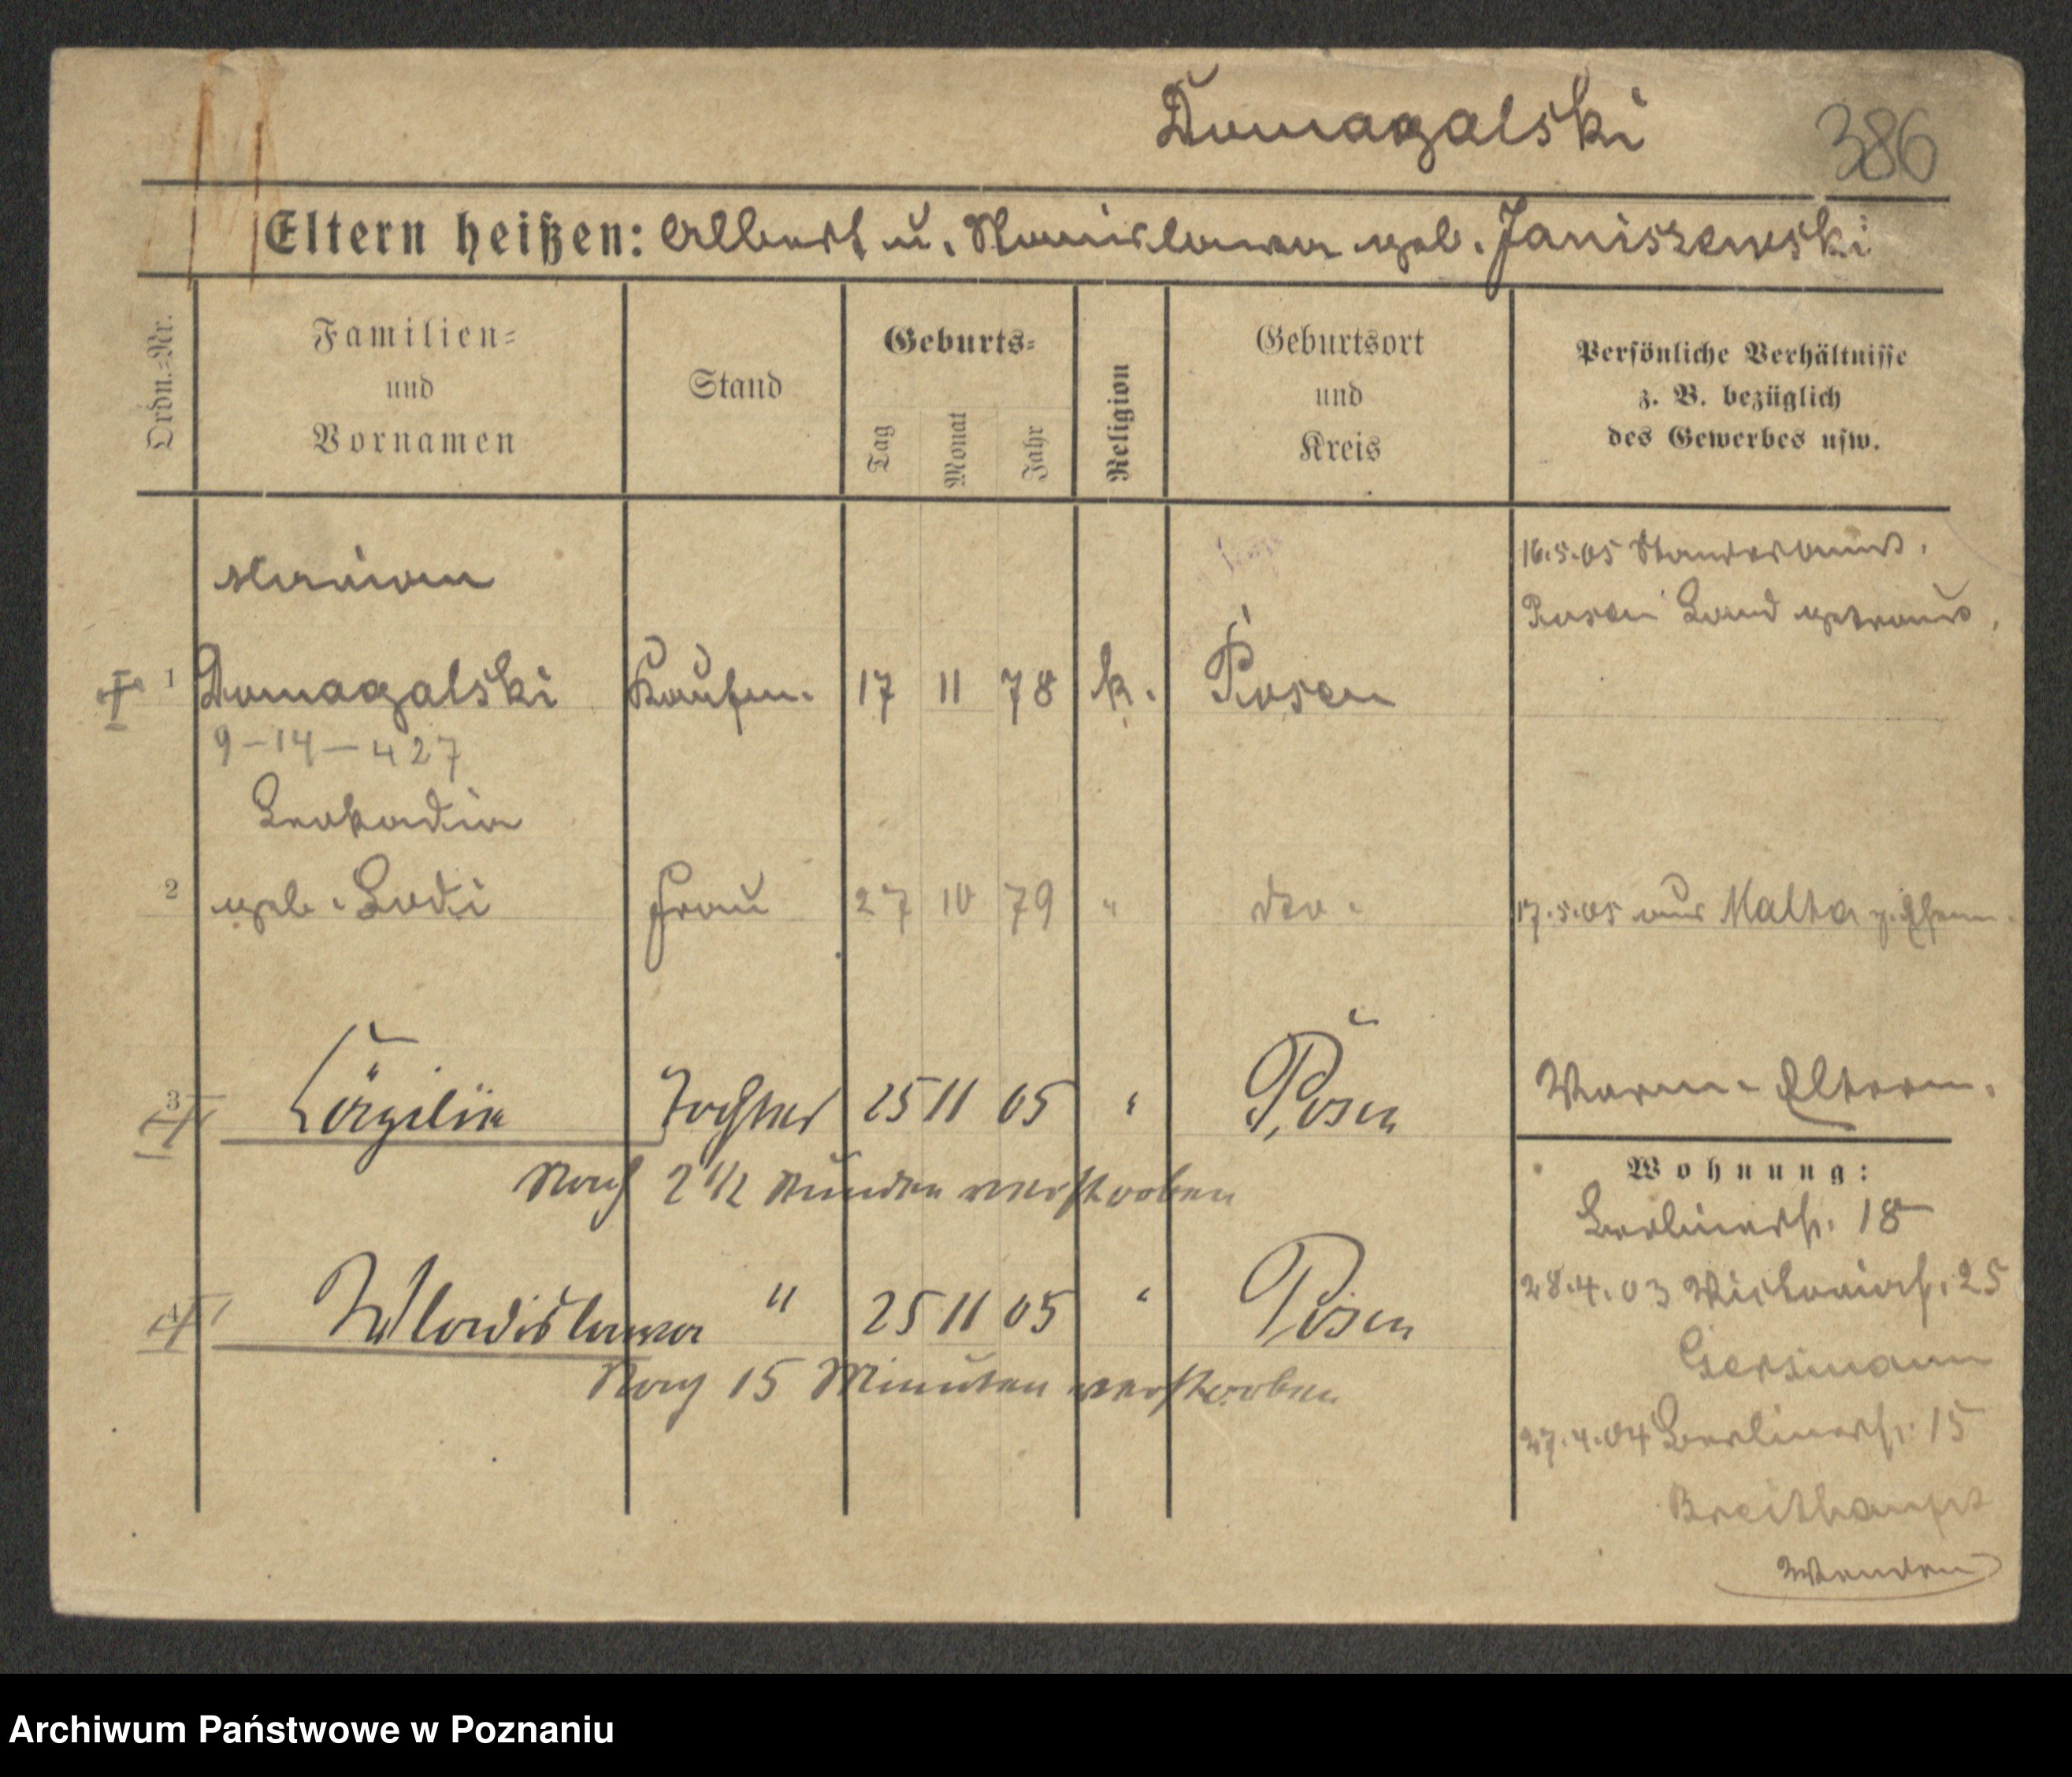 Domagalski 386
Eltern heißen: Albert u. Stanislawa geb. Janiszewski
Ordn.-Nr.
Familien-
und
Vornamen
Stand
Geburts-
Tag
Monat
Jahr
Religion
Geburtsort
und
Kreis
Persönliche Verhältnisse
z. B. bezüglich
des Gewerbes usw.
Marian
1 Domagalski Kaufm. 17 11 78 k. Posen
16.5.05 Standesamt.
Posen Land getraut.
9-14-427
Leokadia
2 geb. Lodi Frau 27 10 79 " dto. 17.5.05 aus Malta z. Ehem.
3 Cäzilie Tochter 25 11 05 " Posen
Nach 2 1/2 Stunden verstorben
Vorm. Eltern.
4 Wladislawa " 25 11 05 " Posen
Nach 15 Minuten verstorben
Wohnung:
Berlinerstr. 18
28.4.03 Victoriastr. 25
Gersmann
27.4.04 Berlinerstr. 15
Breithaupt
Wenden
Archiwum Państwowe w Poznaniu